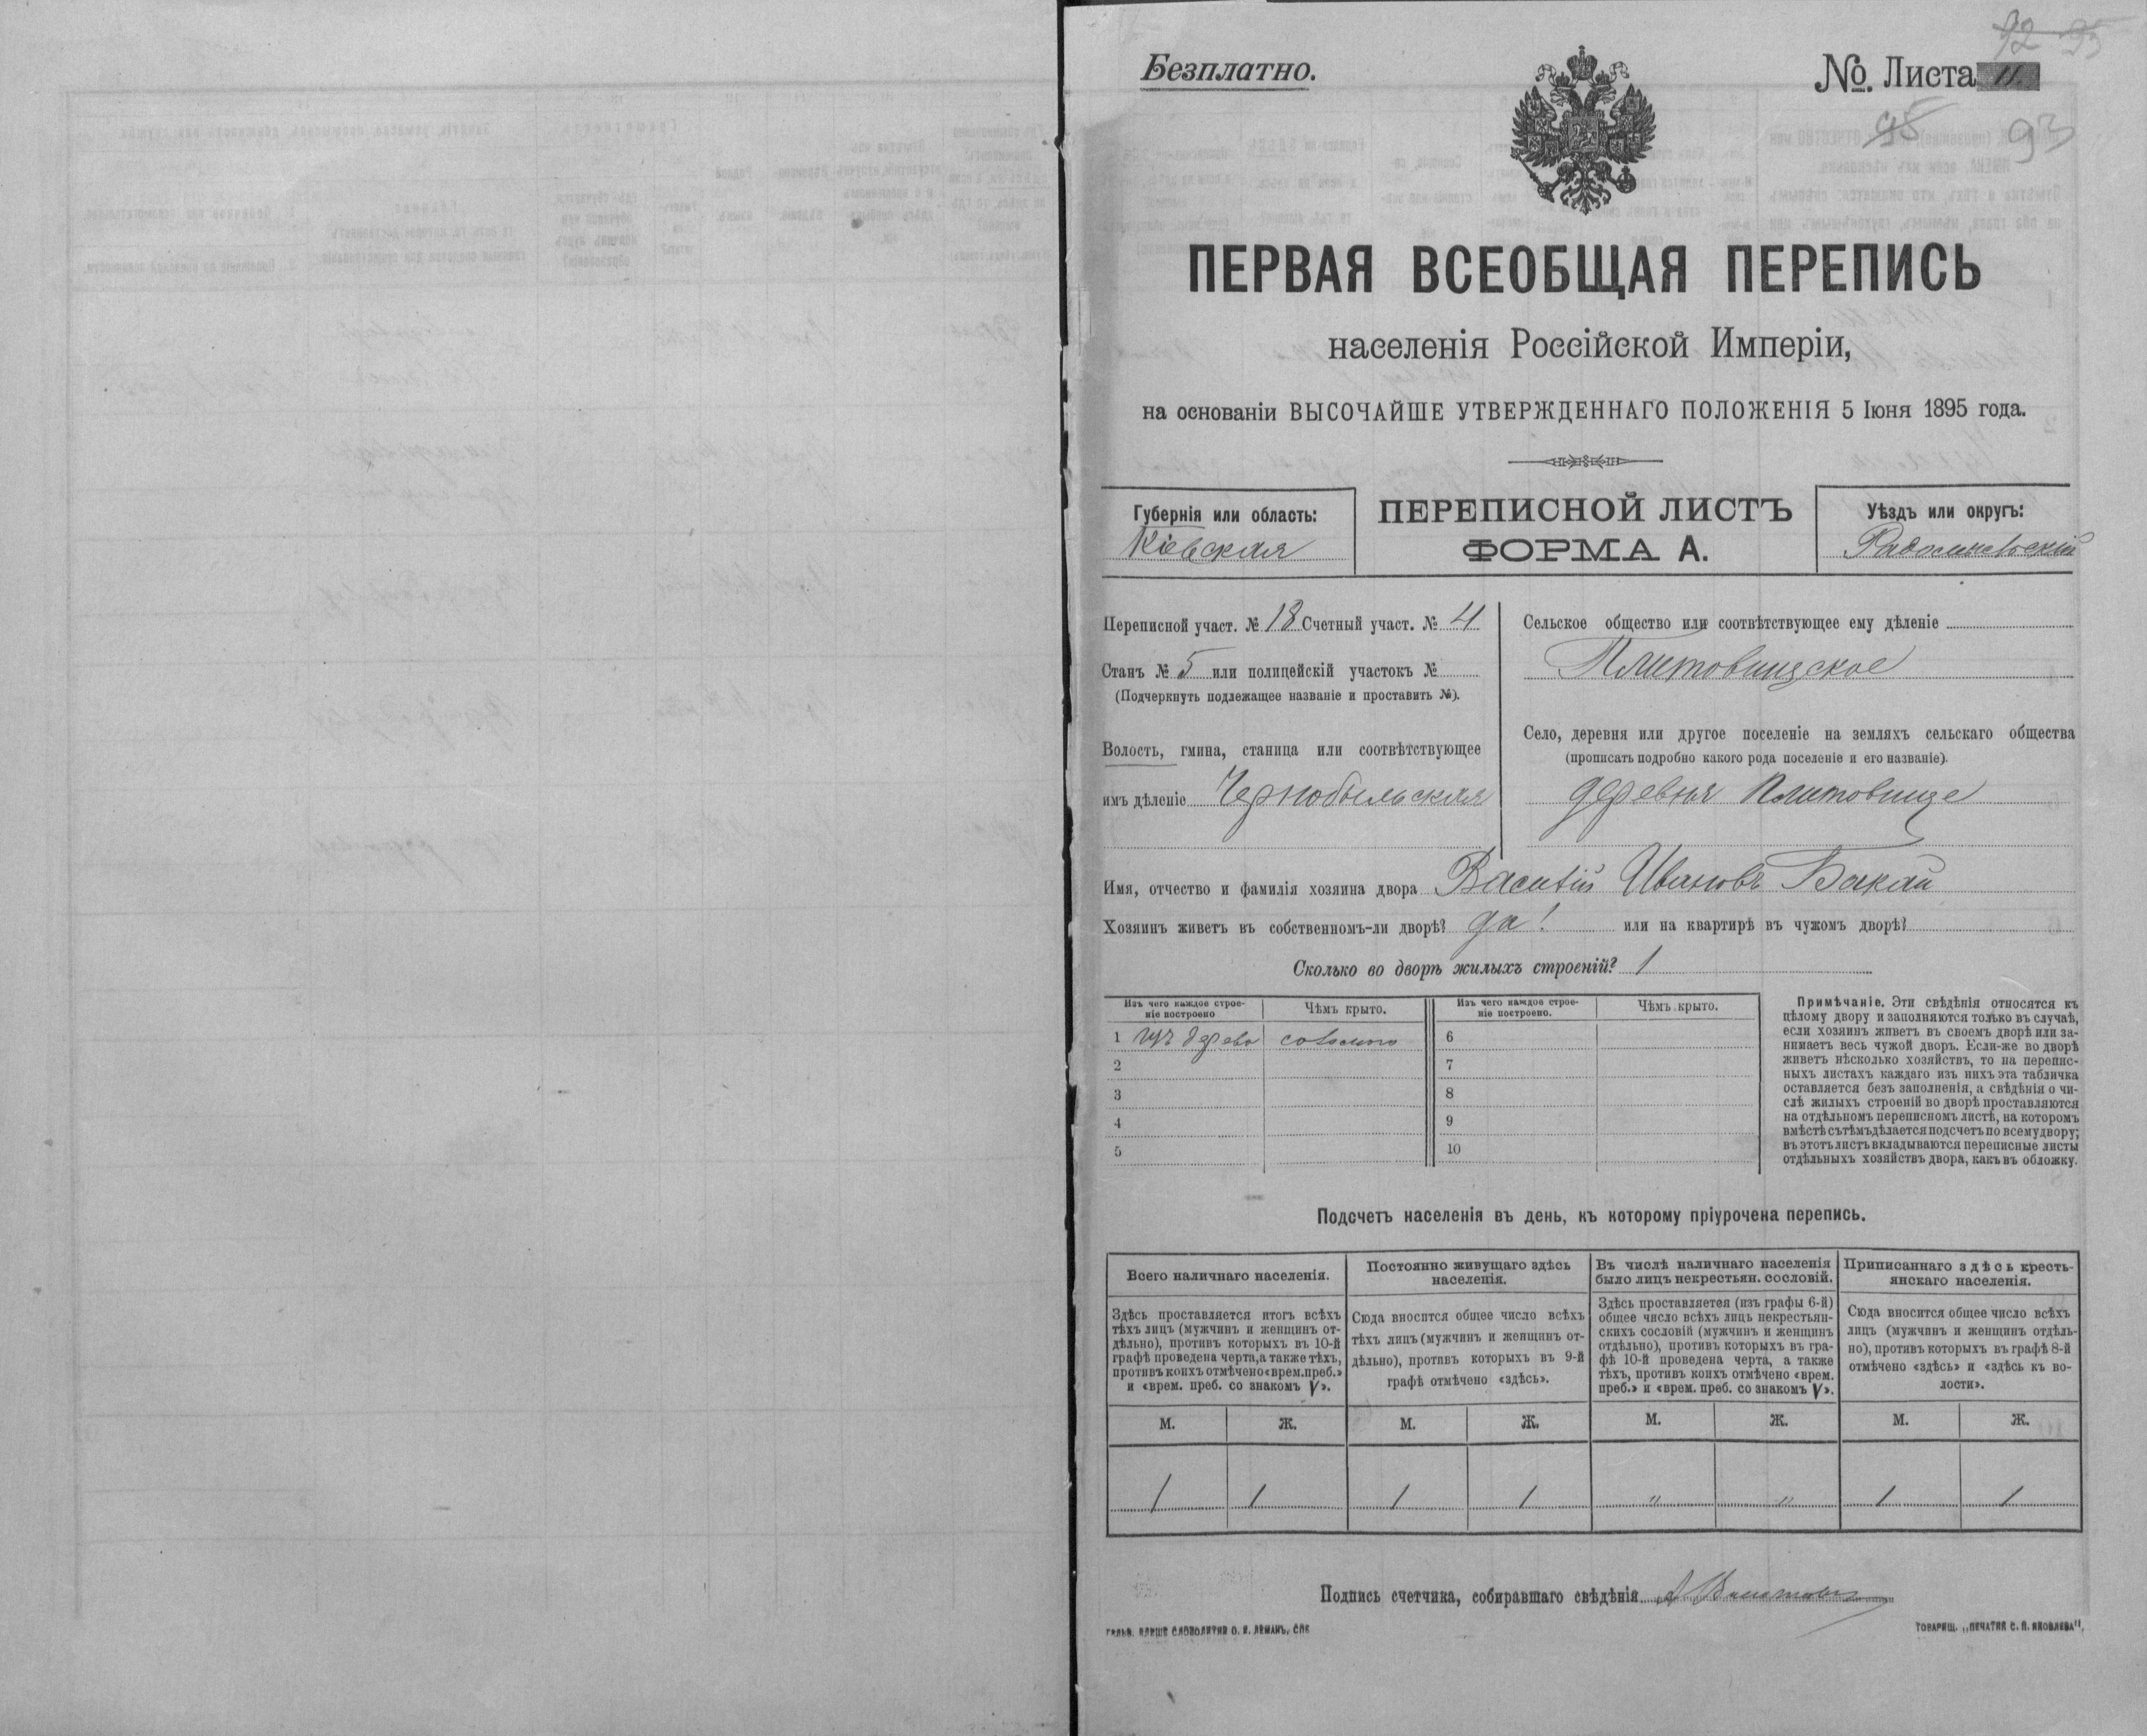 92 95
Безплатно.
№ Листа 11.
95 93
ПЕРВАЯ ВСЕОБЩАЯ ПЕРЕПИСЬ
населенія Россійской Имперіи,
на основаніи ВЫСОЧАЙШЕ УТВЕРЖДЕННАГО ПОЛОЖЕНІЯ 5 Іюня 1895 года.
Губернія или область:
Кіевская
ПЕРЕПИСНОЙ ЛИСТЪ
ФОРМА А.
Уѣздъ или округъ:
Радомысльскій
Переписной участ. № 18 Счетный участ. № 4
Станъ № 5 или полицейскій участокъ №
(Подчеркнуть подлежащее названіе и проставить №).
Волость, гмина, станица или соотвѣтствующее
имъ дѣленіе Чернобыльская
Сельское общество или соотвѣтствующее ему дѣленіе
Плитовищское
Село, деревня или другое поселеніе на земляхъ сельскаго общества
(прописать подробно какого рода поселеніе и его названіе).
деревня Плитовище
Имя, отчество и фамилія хозяина двора Василій Ивановъ Бакай
Хозяинъ живетъ въ собственномъ-ли дворѣ? да! или на квартирѣ въ чужомъ дворѣ?
Сколько во дворѣ жилыхъ строеній? 1
Изъ чего каждое строе-
ніе построено
Чѣмъ крыто.
Изъ чего каждое строе-
ніе построено.
Чѣмъ крыто.
1 изъ дерева соломою
2
3
4
5
6
7
8
9
10
Примѣчаніе. Эти свѣдѣнія относятся къ
цѣлому двору и заполняются только въ случаѣ,
если хозяинъ живетъ въ своемъ дворѣ или за-
нимаетъ весь чужой дворъ. Если-же во дворѣ
живетъ нѣсколько хозяйствъ, то на перепис-
ныхъ листахъ каждаго изъ нихъ эта табличка
оставляется безъ заполненія, а свѣдѣнія о чи-
слѣ жилыхъ строеній во дворѣ проставляются
на отдѣльномъ переписномъ листѣ, на которомъ
вмѣстѣ съ тѣмъ дѣлается подсчетъ по всему двору;
въ этотъ листъ вкладываются переписные листы
отдѣльныхъ хозяйствъ двора, какъ въ обложку.
Подсчетъ населенія въ день, къ которому пріурочена перепись.
Всего наличнаго населенія.
Здѣсь проставляется итогъ всѣхъ
тѣхъ лицъ (мужчинъ и женщинъ от-
дѣльно), противъ которыхъ въ 10-й
графѣ проведена черта, а также тѣхъ,
противъ коихъ отмѣчено «врем. преб.»
и «врем. преб. со знакомъ V».
Постоянно живущаго здѣсь
населенія.
Сюда вносится общее число всѣхъ
тѣхъ лицъ (мужчинъ и женщинъ от-
дѣльно), противъ которыхъ въ 9-й
графѣ отмѣчено «здѣсь».
Въ числѣ наличнаго населенія
было лицъ некрестьян. сословій.
Здѣсь проставляется (изъ графы 6-й)
общее число всѣхъ лицъ некрестьян-
скихъ сословій (мужчинъ и женщинъ
отдѣльно), противъ которыхъ въ гра-
фѣ 10-й проведена черта, а также
тѣхъ, противъ коихъ отмѣчено «врем.
преб.» и «врем. преб. со знакомъ V».
Приписаннаго здѣсь кресть-
янскаго населенія.
Сюда вносится общее число всѣхъ
лицъ (мужчинъ и женщинъ отдѣль-
но), противъ которыхъ въ графѣ 8-й
отмѣчено «здѣсь» и «здѣсь къ во-
лости».
М. Ж. М. Ж. М. Ж. М. Ж.
1 1 1 1 " " 1 1
Подпись счетчика, собиравшаго свѣдѣнія
ТОВАРИЩ. „ПЕЧАТНЯ С. П. ЯКОВЛЕВА".